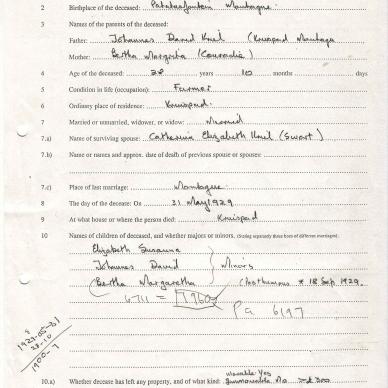 2 Birthplace of the deceased: Montague
3 Names of the parents of the deceased:
Father: Johannes David Kriel (Kruispad Montagu
Mother: Bertha Margreta (Conradie)
4 Age of the deceased: 28 years 10 months days
5 Condition in life (occupation): Farmer
6 Ordinary place of residence: Kruispad.
7 Married or unmarried, widower, or widow: Married
7.a) Name of surviving spouse: Catherina Elizabeth Kriel (Swart)
7.b) Name or names and approx. date of death of previous spouse or spouses:
7.c) Place of last marriage: Montague
8 The day of the decease: On 31 May 1929
9 At what house or where the person died: Kruispad
10 Names of children of deceased, and whether majors or minors.
Elizabeth Susanna
Johannes David } Minors
(Bertha Margaretha (Posthumous * 18 Sep 1929.
6711 = 1960
Pa 6197
1929-05-31
28-10
1900-7
10.a) Whether deceased has left any property, and of what kind: Movable Yes